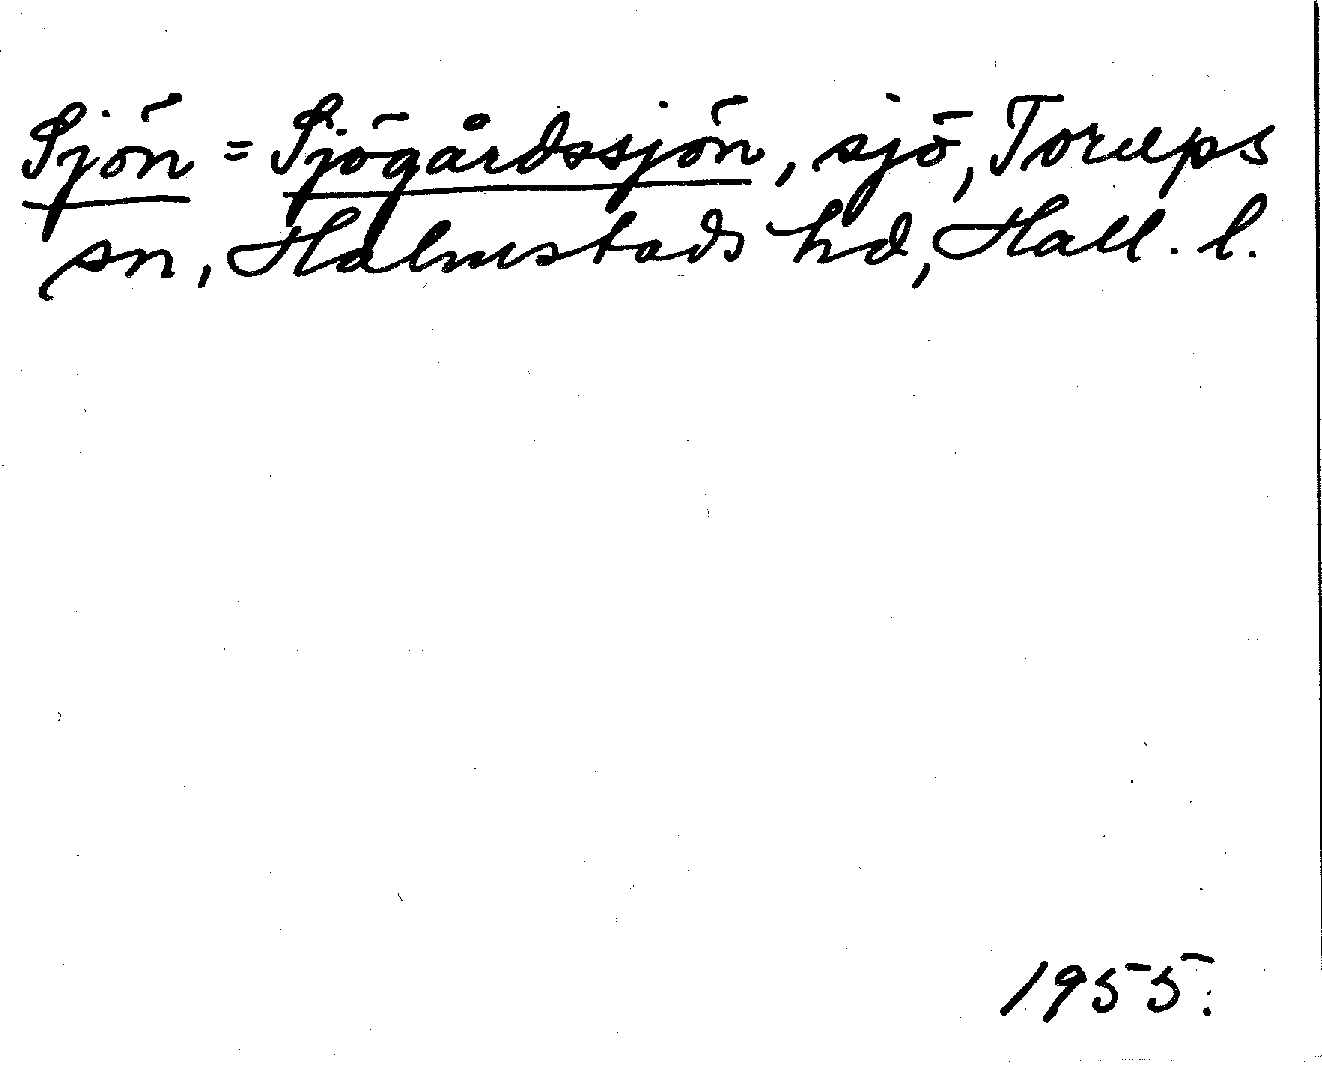 Sjön = Sjögårdssjön, sjö, Torups
sn, Halmstads hd, Hall. l.
1955.